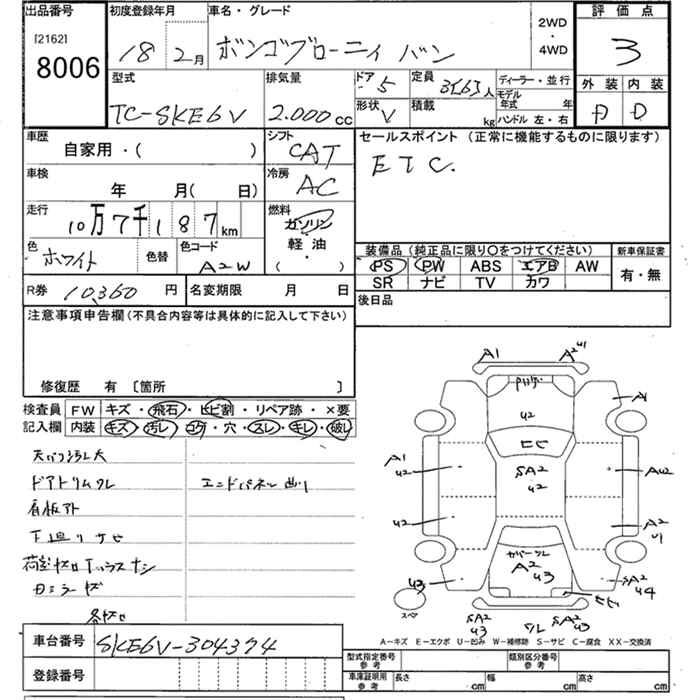 出品番号 初度登録年月 車名・グレード 2WD・4WD 評価点
[2162]
8006 18年 2月 ボンゴブローニィ バン 3
型式 排気量 ドア 5 定員 3(6)人 ディーラー・並行 外装 内装
TC-SKE6V 2.000cc 形状 V 積載 kg モデル年式 年 D
ハンドル 左・右
車歴 シフト セールスポイント (正常に機能するものに限ります)
自家用・( ) CAT ETC.
車検 冷房
年 月( 日) AC
走行 燃料
10万7千187km ガソリン
軽油
( )
色 色替 色コード 装備品(純正品に限り〇をつけてください) 新車保証書
ホワイト A2W PS PW ABS エアB AW 有・無
SR ナビ TV カワ
R券 10,360円 名変期限 月 日 後日品
注意事項申告欄(不具合内容等は具体的に記入して下さい)
修復歴 有 [箇所 ]
検査員 FW キズ・飛石・ヒビ割・リペア跡・×要
記入欄 内装 キズ・汚レ・コゲ・穴・スレ・キレ・破レ
ドアトリムワレ エンドパネル凹
看板アト
下廻りサビ
A1 A2 U1
A1
U2
A1 U2 SA2 U2 AU2
U2 A2 U1
A2 U3
U3 SA2 U4
スペ SA2 U3 SA2 U3
車台番号 SKE6V-304374
A-キズ E-エクボ U-凹み W-補修跡 S-サビ C-腐食 XX-交換済
登録番号 型式指定番号 参考 類別区分番号 参考
車庫証明用 参考 長さ cm 幅 cm 高さ cm